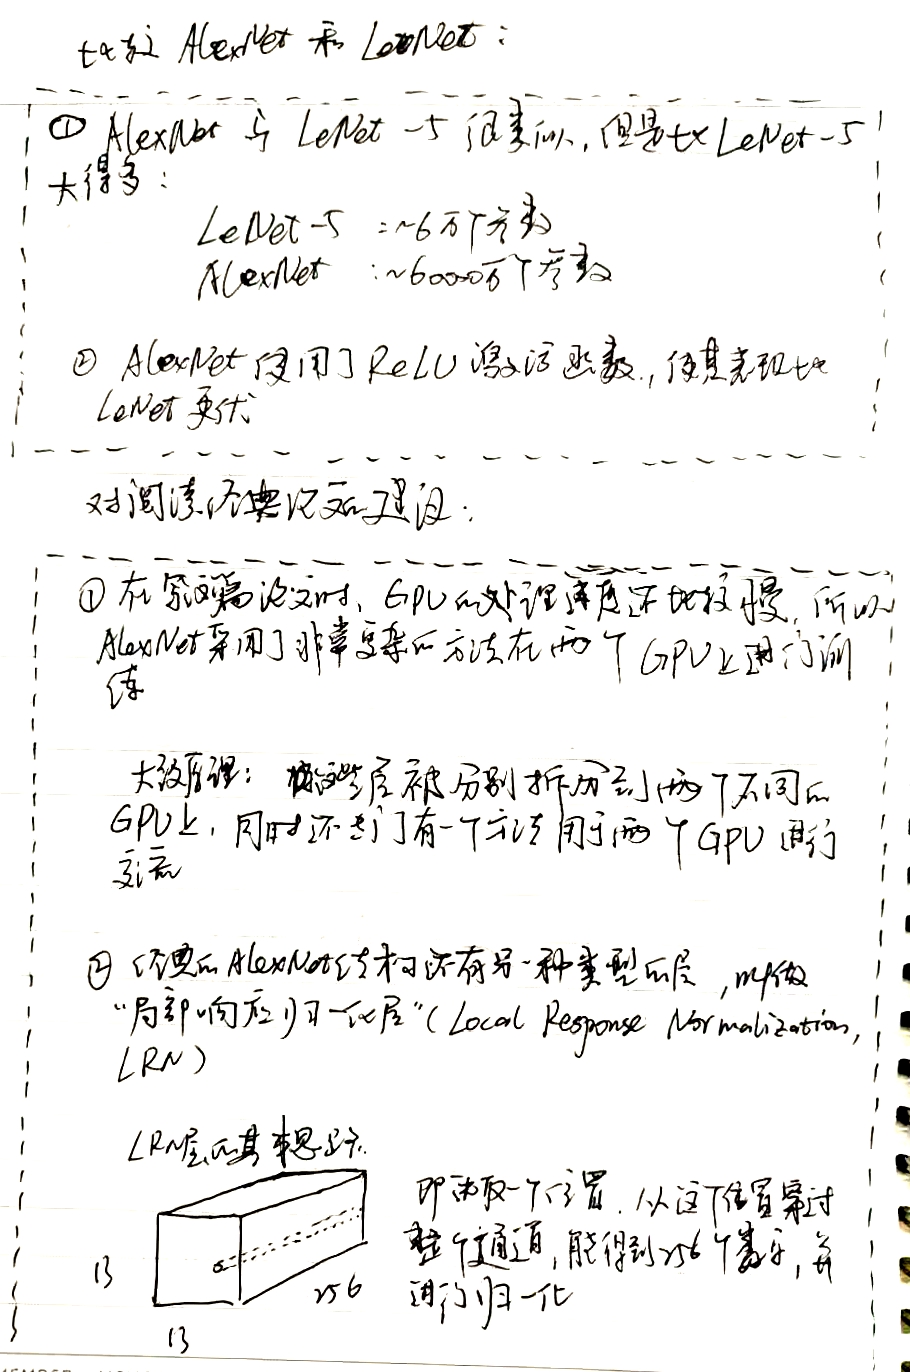 比较 AlexNet 和 LeNet：
① AlexNet 与 LeNet-5 很类似，但是比 LeNet-5
大得多：
LeNet-5 ：~6万个参数
AlexNet ：~6000万个参数
② AlexNet 使用了 ReLU 激活函数，使其表现比
LeNet 更优
对阅读经典论文的建议：
① 在写这篇论文时，GPU的处理速度还比较慢，所以
AlexNet采用了非常复杂的方法在两个GPU上进行训
练
大致原理：这些层被分别拆分到两个不同的
GPU上，同时还专门有一个方法用于两个GPU进行
交流
② 经典的AlexNet结构还有另一种类型的层，叫做
“局部响应归一化层”（Local Response Normalization,
LRN）
LRN层的基本思路：
即选取一个位置，从这个位置穿过
整个通道，能得到256个数字，并
进行归一化
13
256
13